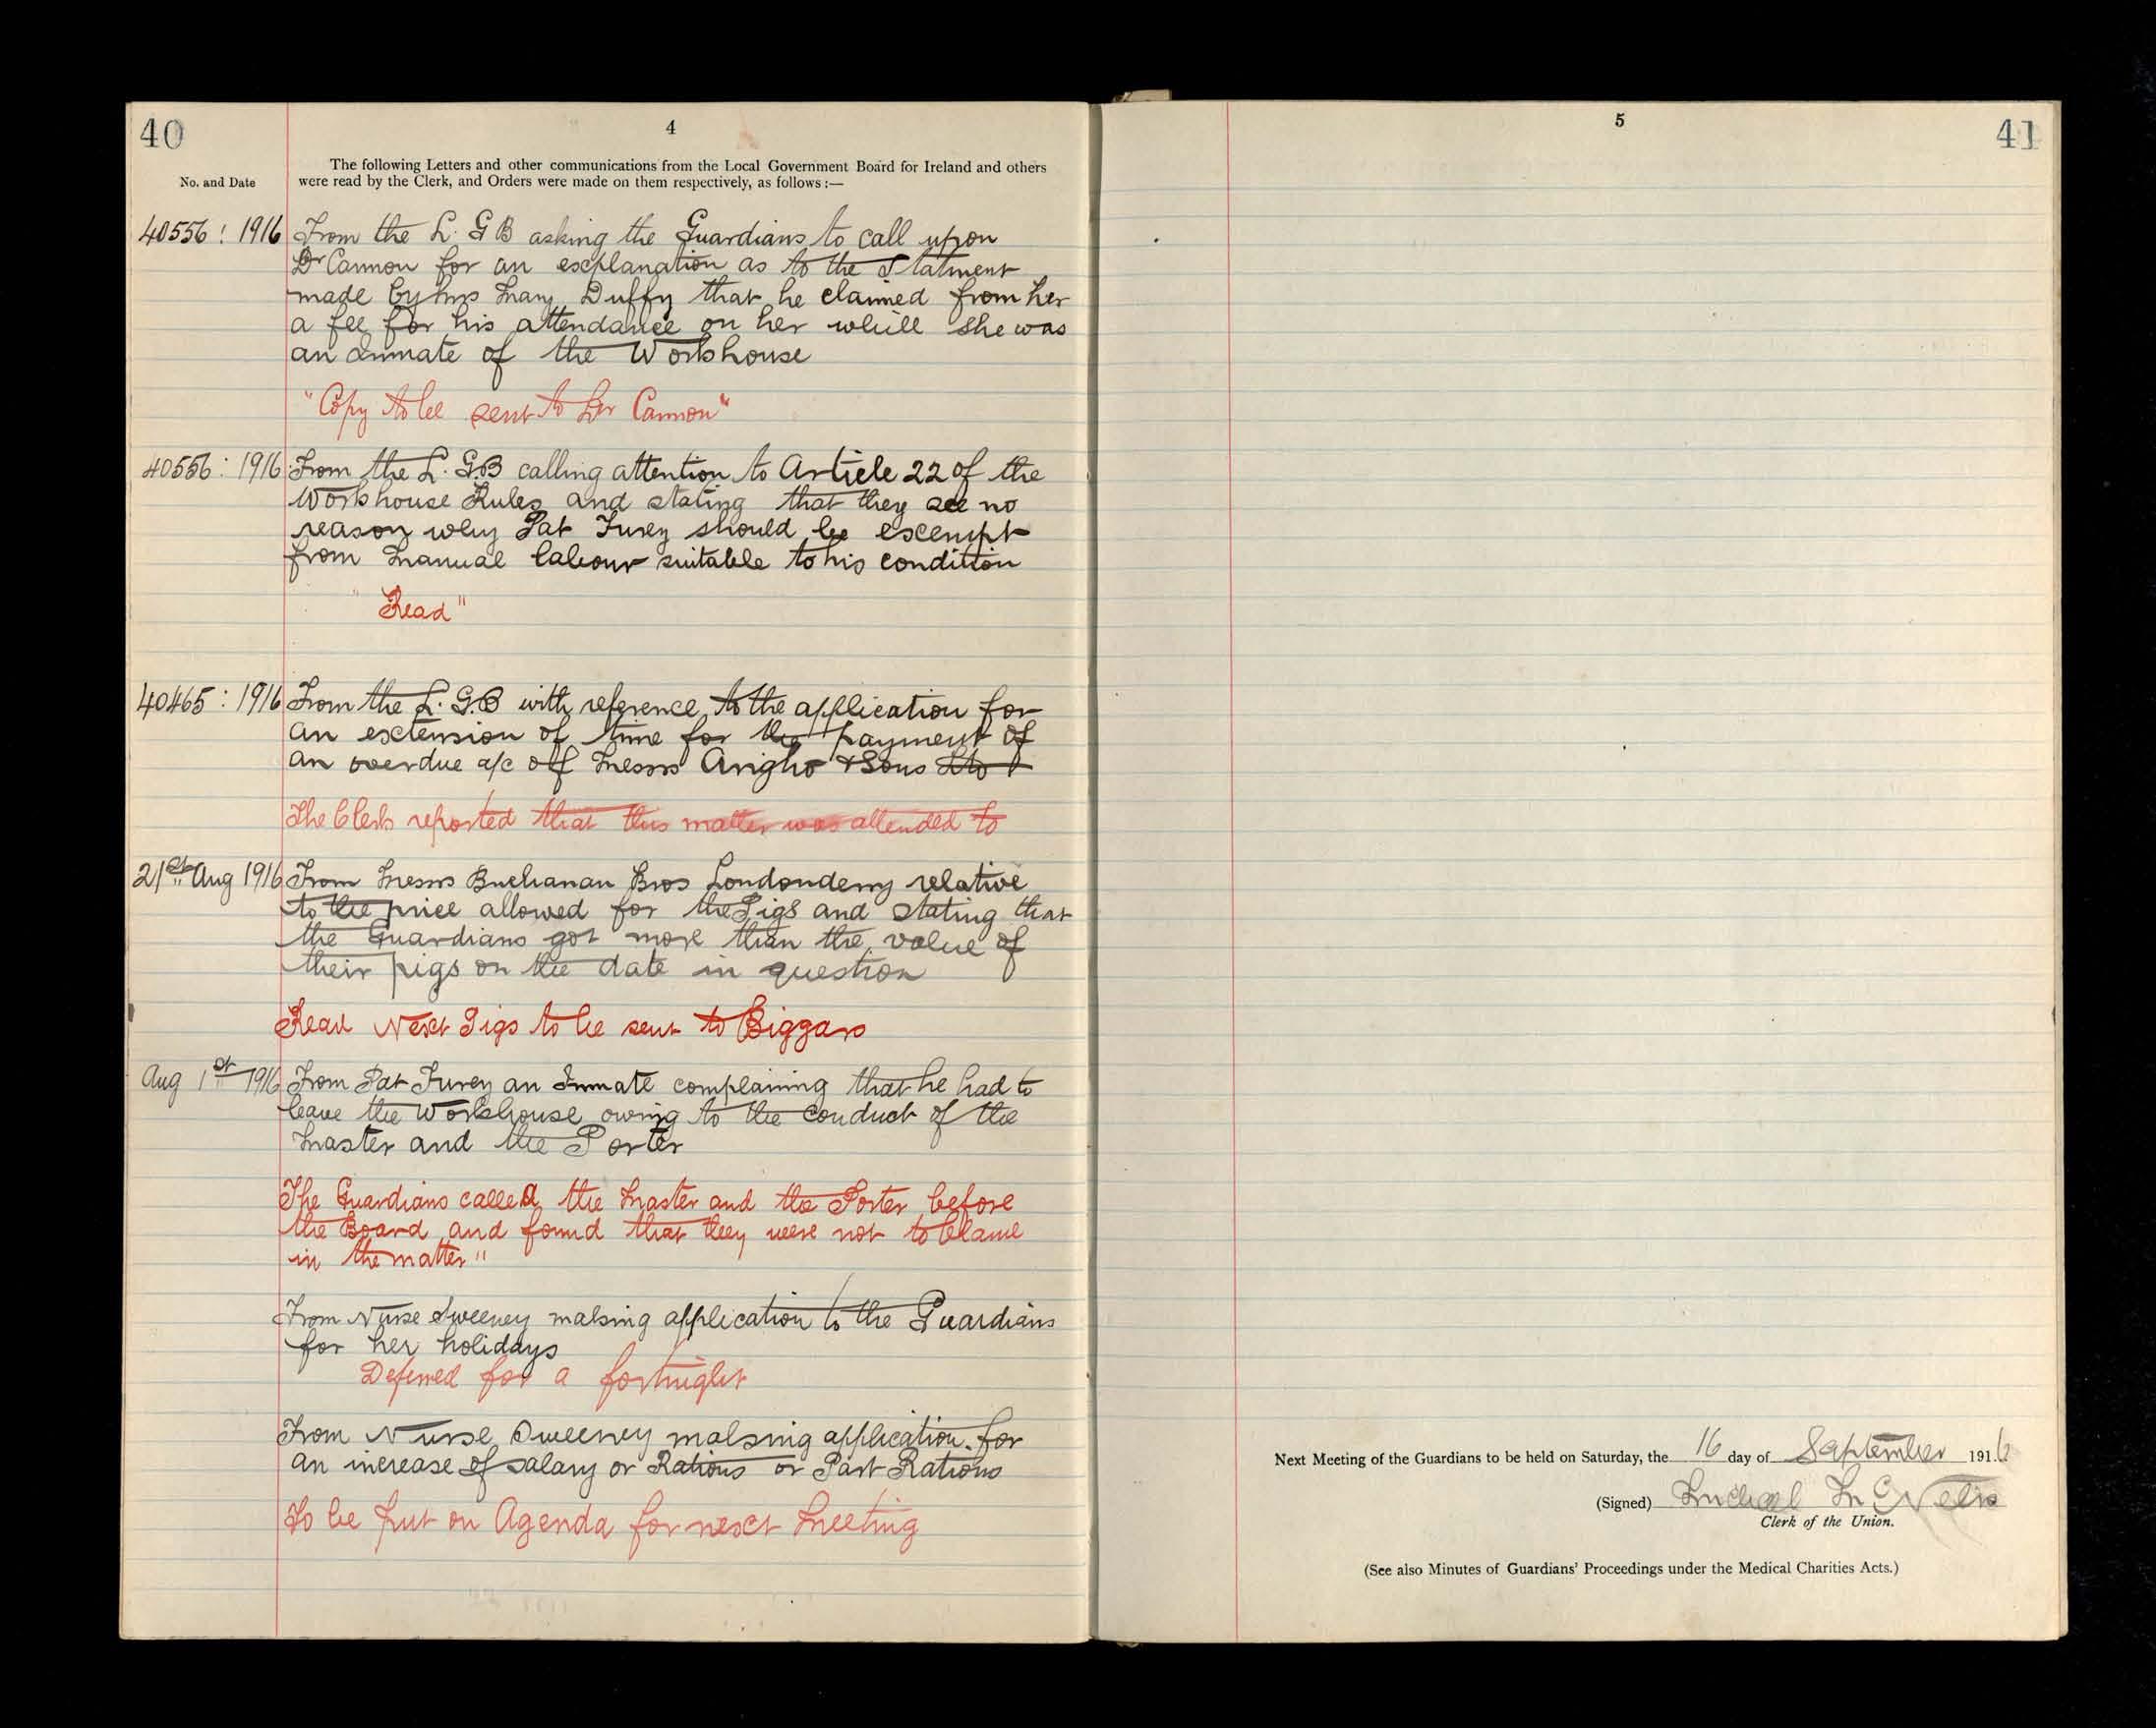 40
4
The following Letters and other communications from the Local Government Board for Ireland and others
No. and Date
were read by the Clerk, and Orders were made on them respectively, as follows :—
40556 : 1916 From the L. G B asking the Guardians to call upon
Dr Cannon for an explanation as to the Statment
made by Mrs Mary Duffy that he claimed from her
a fee for his attendance on her while she was
an Inmate of the Workhouse
"Copy to be sent to Dr Cannon"
40556 : 1916 From the L. G.B calling attention to Article 22 of the
Workhouse Rules and stating that they see no
reason why Pat Furey should be exempt
from Manual labour suitable to his condition
"Read"
40465 : 1916 From the L. G.B with reference to the application for
an extension of time for the payment of
an overdue a/c off Messrs Ariglio & Sons
The Clerk reported that this matter was attended to
21st Aug 1916 From Messrs Buchanan Bros Londonderry relative
to the price allowed for the Pigs and stating that
the Guardians got more than the value of
their pigs on the date in question
Read Next Pigs to be sent to Biggars
Aug 1st 1916 From Pat Furey an Inmate complaining that he had to
leave the Workhouse owing to the conduct of the
Master and the Porter
The Guardians called the Master and the Porter before
the Board and found that they were not to blame
in the matter"
From Nurse Sweeney making application to the Guardians
for her holidays
Deferred for a fortnight
From Nurse Sweeney making application for
an increase of salary or Rations or Part Rations
To be put on Agenda for next Meeting
5
41
Next Meeting of the Guardians to be held on Saturday, the 16 day of September 1916
(Signed) Michael McNelis
Clerk of the Union.
(See also Minutes of Guardians' Proceedings under the Medical Charities Acts.)